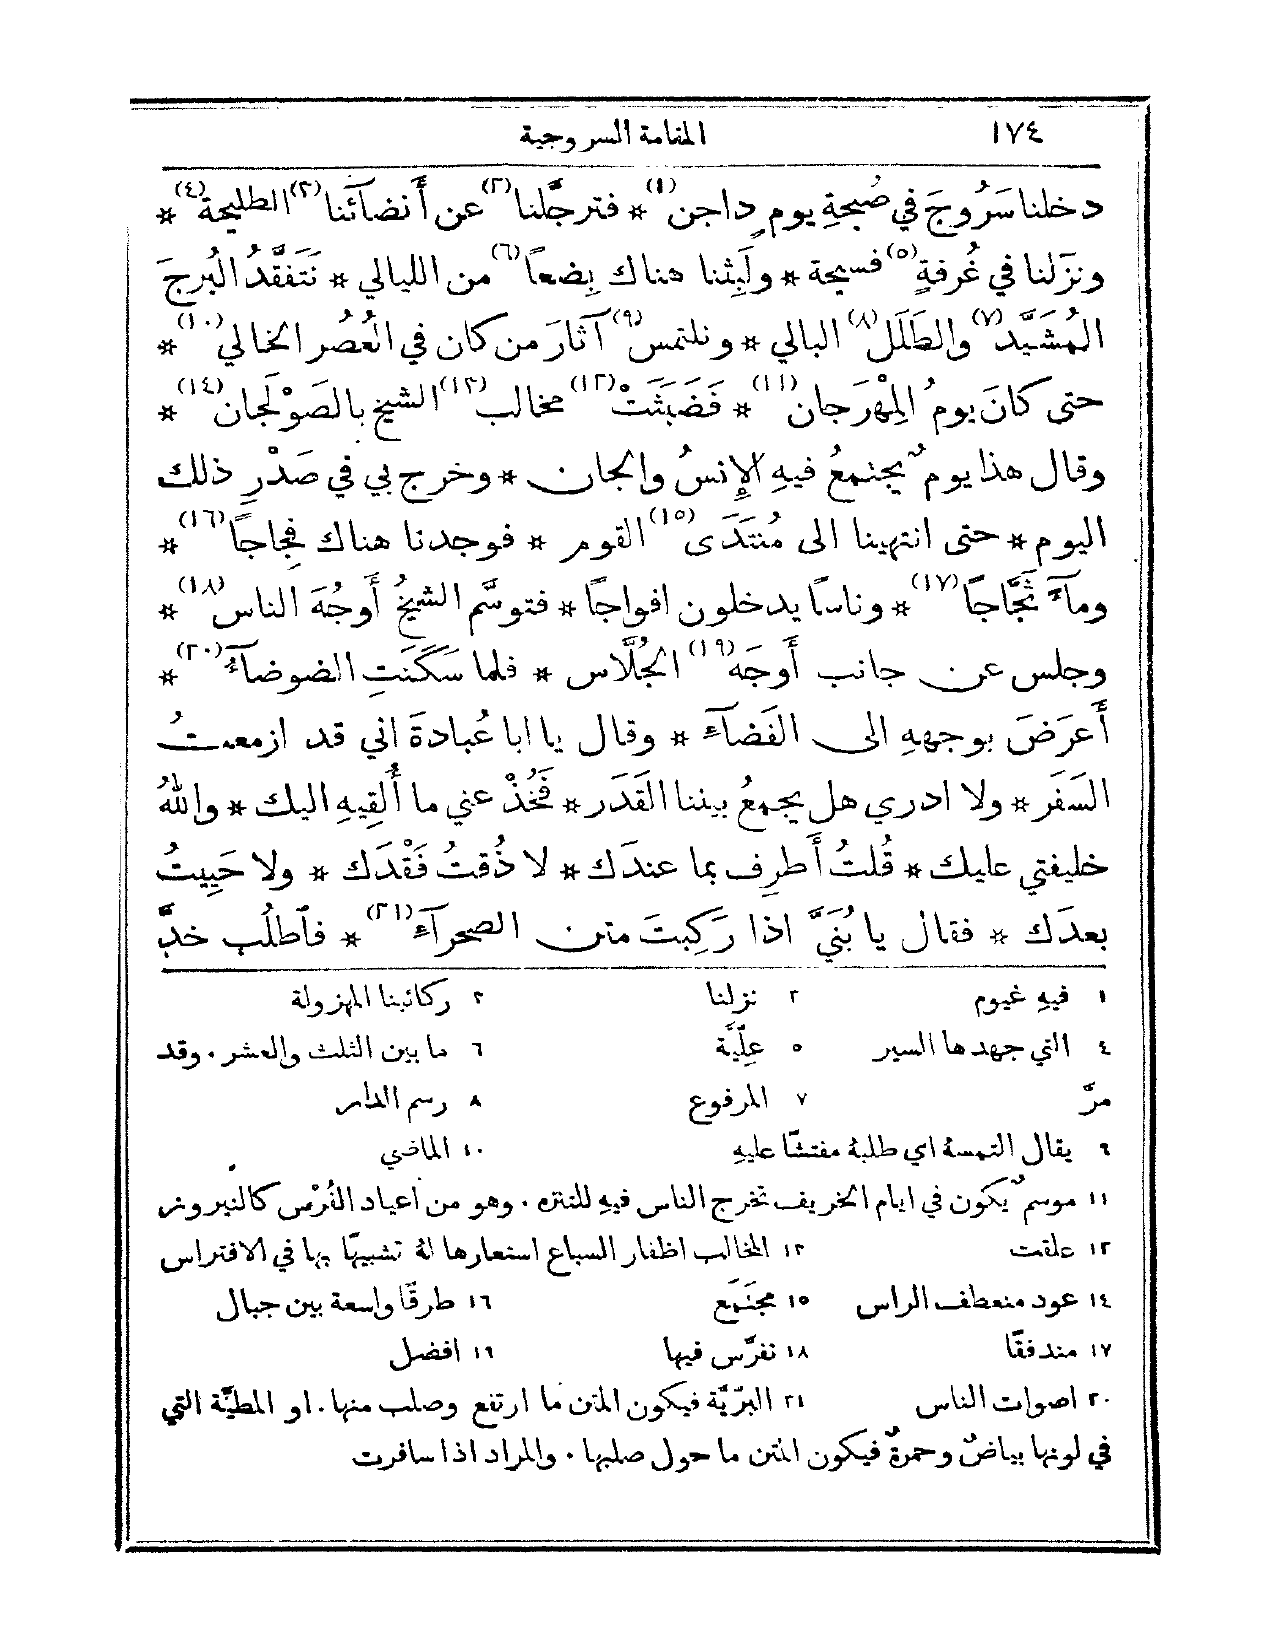 ١٧٤ المقامة السروجية
دخلنا سَرُوجَ في صُبحةِ يومٍ داجن(١) * فترجَّلنا(٢) عن أَنضآئنا(٣) الطليحة(٤) *
ونزَلنا في غُرفةٍ(٥) فسيحة * ولَبِثنا هناك بِضعاً(٦) من الليالي * نَتَفقَّدُ البُرجَ
المُشيَّد(٧) والطَلَل(٨) البالي * ونلتمس(٩) آثارَ من كان في العُصُر الخالي(١٠) *
حتى كانَ يومُ المِهْرَجان(١١) * فَضَبَثَتْ(١٢) مخالب(١٣) الشيخ بالصَوْلَجان(١٤) *
وقال هذا يومٌ يجتمعُ فيهِ الإِنسُ والجان * وخرج بي في صَدْرِ ذلك
اليوم * حتى انتهينا الى مُنتَدَى(١٥) القوم * فوجدنا هناك فِجاجاً(١٦) *
ومآءً ثَجَّاجاً(١٧) * وناساً يدخلون افواجاً * فتوسَّم الشيخُ أَوجُهَ الناس(١٨) *
وجلس عن جانب أَوجَه(١٩) الجُلَّاس * فلما سَكَنَتِ الضوضآءُ(٢٠) *
أَعرَضَ بوجههِ الى الفَضآء * وقال يا ابا عُبادةَ اني قد ازمعتُ
السَفَر * ولا ادري هل يجمعُ بيننا القَدَر * فَخُذْ عني ما أُلقِيهِ اليك * واللهُ
خليفتي عليك * قُلتُ أَطرِف بما عندَك * لا ذُقتُ فَقْدَك * ولا حَيِيتُ
بعدَك * فقال يا بُنَيَّ اذا رَكِبتَ متن الصحرآء(٢١) * فاطلُب خدَّ
١ فيهِ غيوم ٢ نزلنا ٣ ركائبنا المهزولة
٤ التي جهدها السير ٥ عِلِّيَّة ٦ ما بين الثلث والعشر . وقد
مرَّ ٧ المرفوع ٨ رسم الدار
٩ يقال التمسهُ اي طلبهُ مفتشًا عليهِ ١٠ الماضي
١١ موسمٌ يكون في ايام الخريف تخرج الناس فيهِ للتنزه . وهو من أعياد الفُرْس كالنيروز
١٢ علقت ١٣ المخالب اظفار السباع استعارها لهُ تشبيهًا بها في الافتراس
١٤ عود منعطف الراس ١٥ مجتَمَع ١٦ طرقًا واسعة بين جبال
١٧ مندفقًا ١٨ تفرَّس فيها ١٩ افضل
٢٠ اصوات الناس ٢١ البرّيَّة فيكون المتن ما ارتفع وصلب منها . او المطيَّة التي
في لونها بياضٌ وحمرةٌ فيكون المتن ما حول صلبها . والمراد اذا سافرت